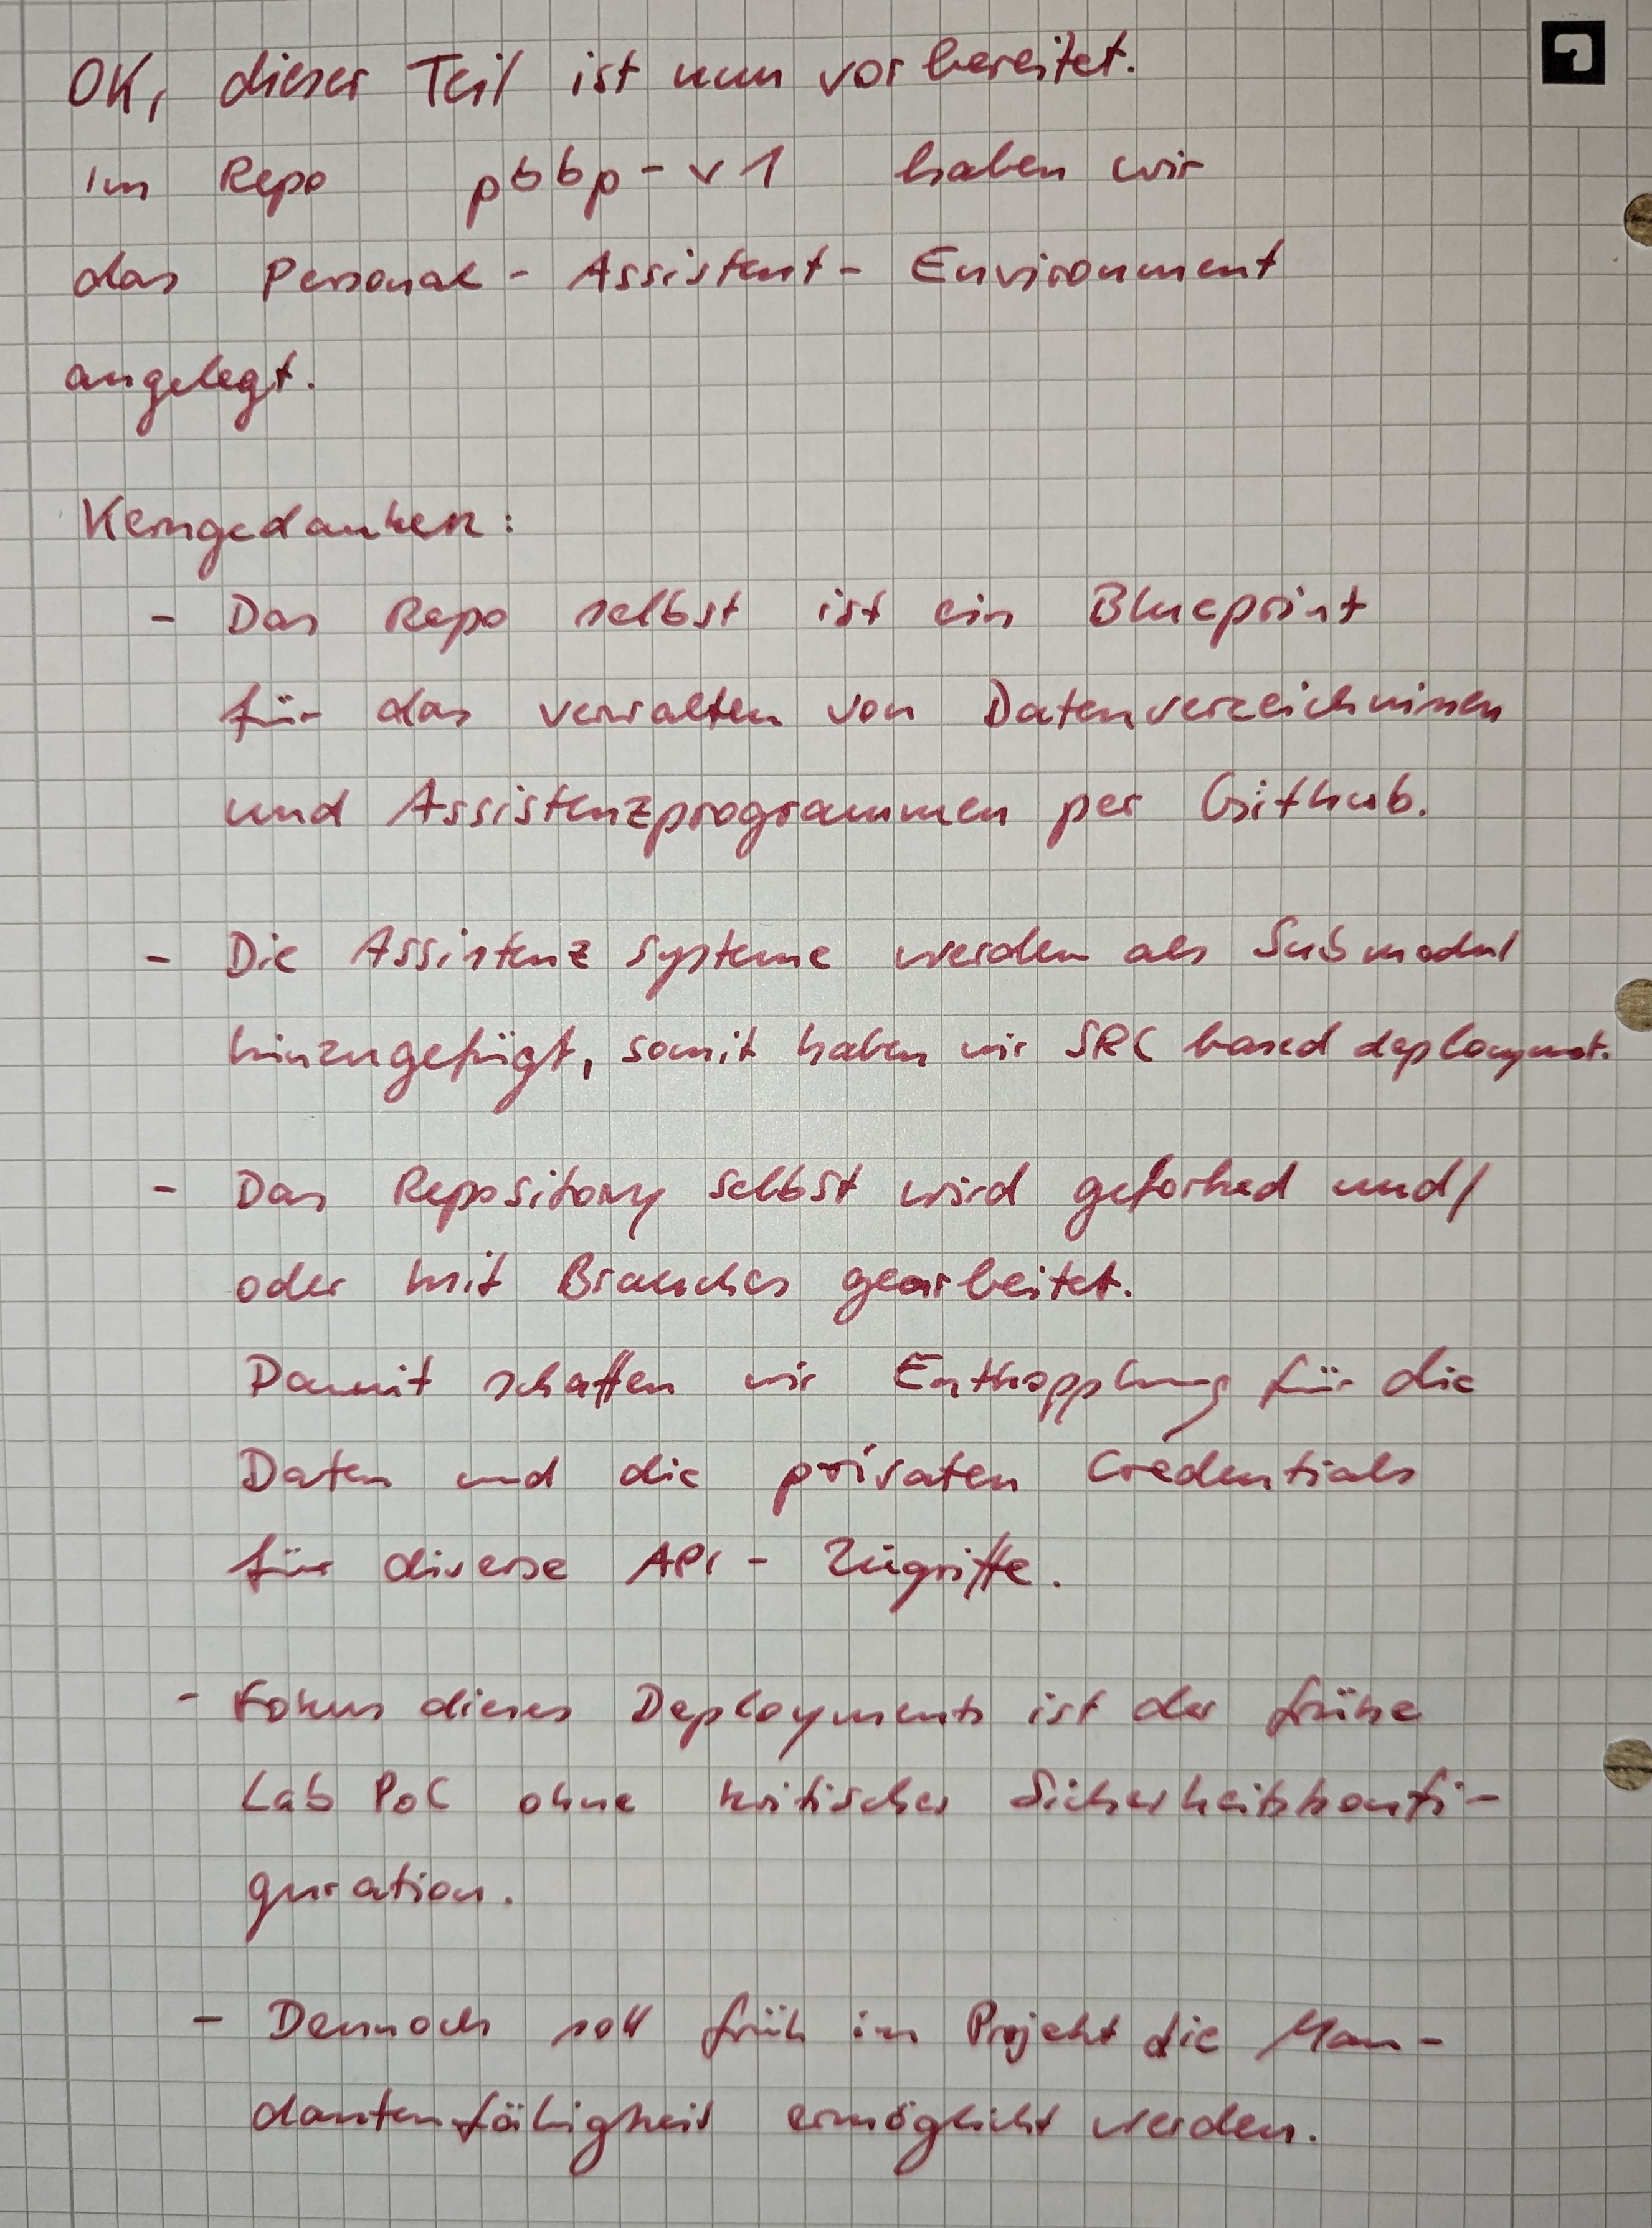 OK, dieser Teil ist nun vorbereitet.
im Repo pbbp-v1 haben wir
das Personal-Assistent-Environment
angelegt.
Kerngedanken:
- Das Repo selbst ist ein Blueprint
für das verwalten von Datenverzeichnissen
und Assistenzprogrammen per Github.
- Die Assistenz systeme werden als Submodul
hinzugefügt, somit haben wir SRC based deployment.
- Das Repository selbst wird geforked und/
oder mit Branches gearbeitet.
Damit schaffen wir Entkopplung für die
Daten und die privaten Credentials
für diverse API- Zugriffe.
- Fokus dieses Deployments ist der frühe
Lab PoC ohne kritischer Sicherheitskonfi-
guration.
- Dennoch soll früh im Projekt die Man-
dantenfähigkeit ermöglicht werden.